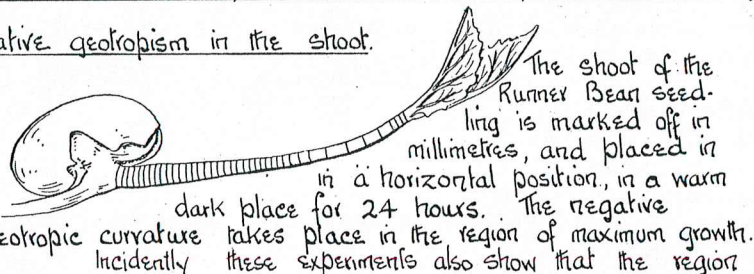 ative geotropism in the shoot.
The shoot of the
Runner Bean seed-
ling is marked off in
millimetres, and placed in
in a horizontal position, in a warm
dark place for 24 hours. The negative
eotropic currature takes place in the region of maximum growth.
Incidently these experiments also show that the region